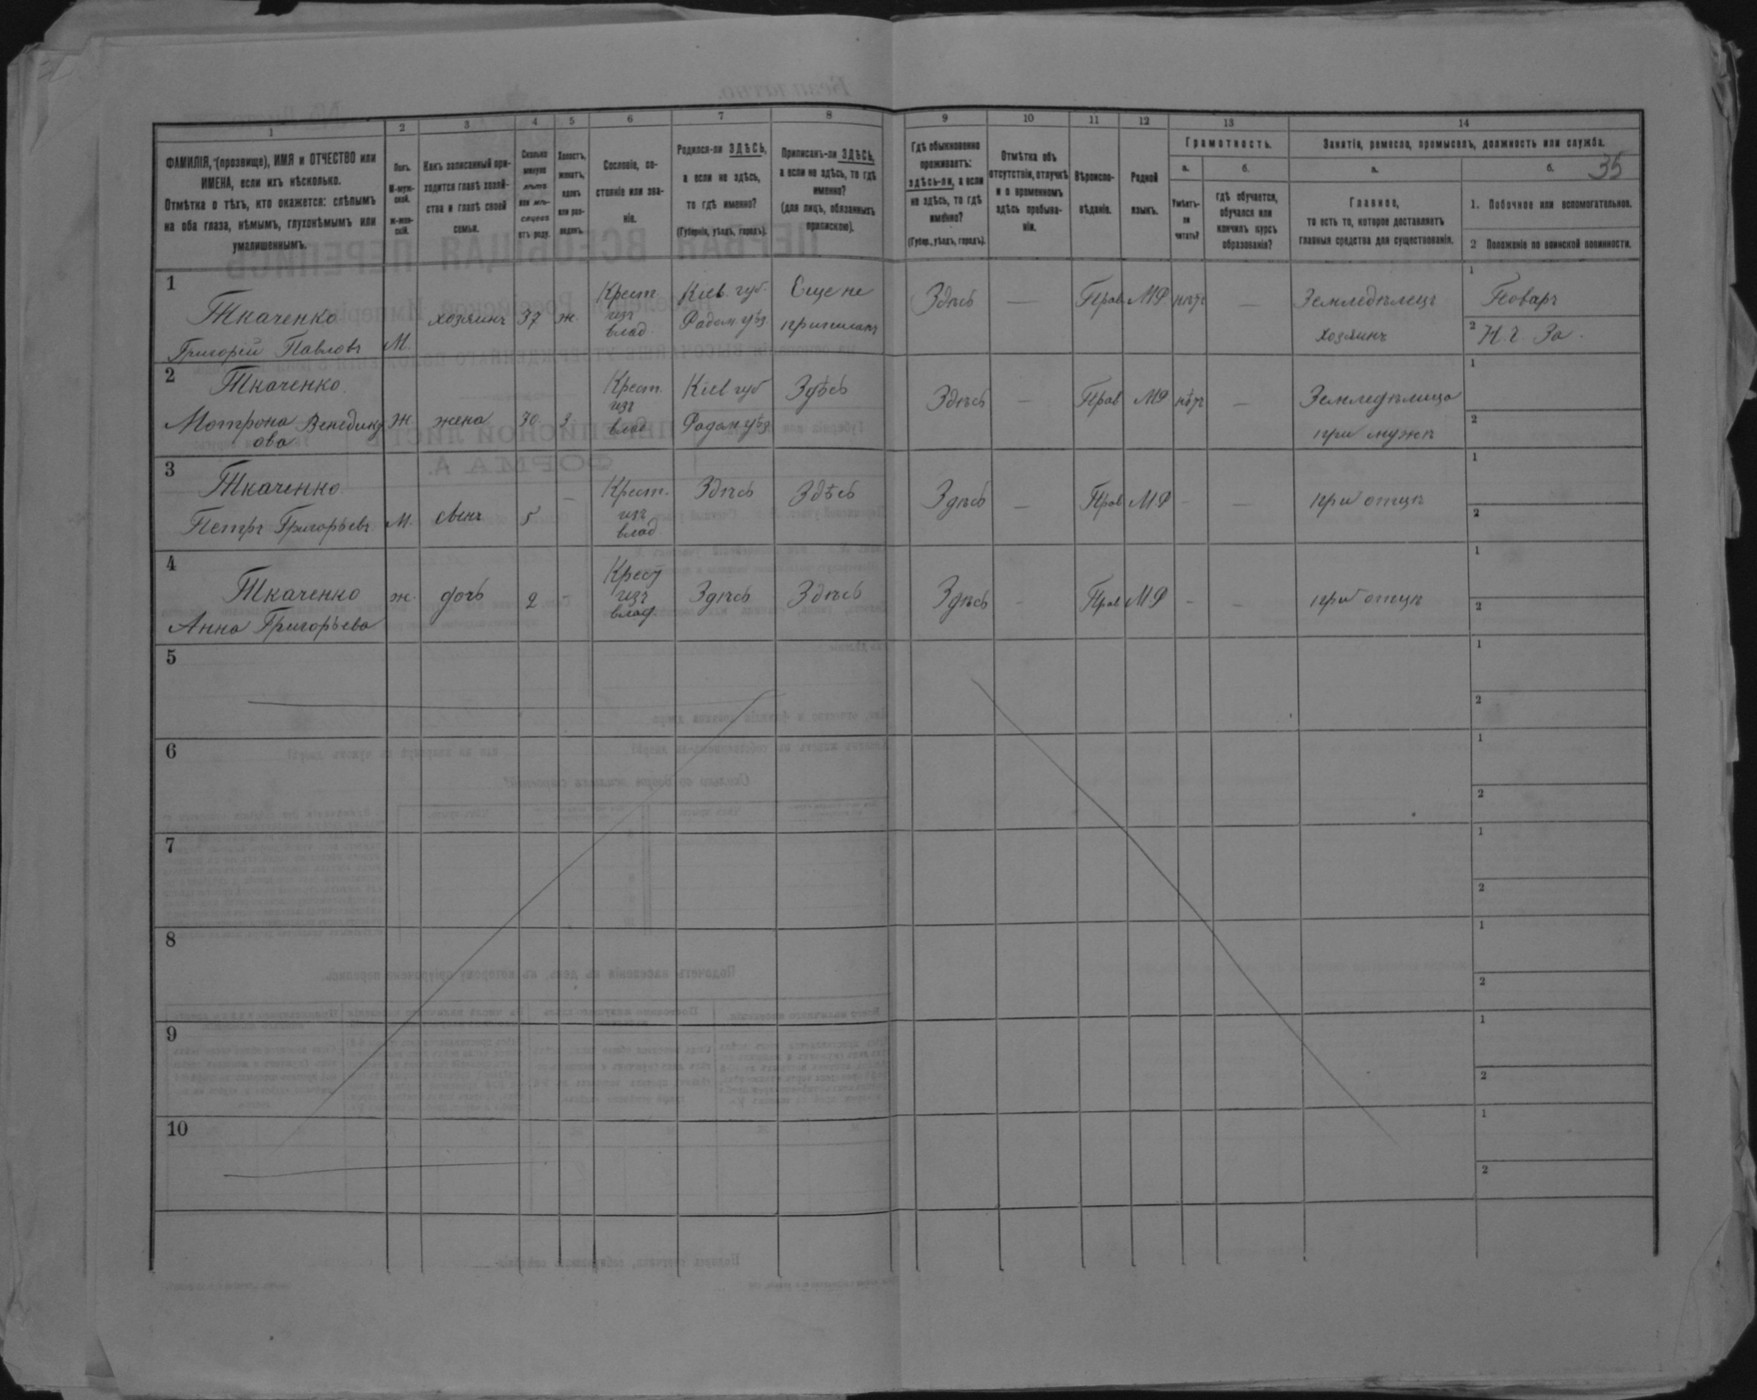 35
1 2 3 4 5 6 7 8 9 10 11 12 13 14
ФАМИЛІЯ, (прозвище), ИМЯ и ОТЧЕСТВО или
ИМЕНА, если ихъ нѣсколько.
Отмѣтка о тѣхъ, кто окажется: слѣпымъ
на оба глаза, нѣмымъ, глухонѣмымъ или
умалишеннымъ.
Полъ.
М-муж-
ской.
Ж-жен-
скій.
Какъ записанный при-
ходится главѣ хозяй-
ства и главѣ своей
семьи.
Сколько
минуло
лѣтъ
или мѣ-
сяцевъ
отъ роду.
Холостъ,
женатъ,
вдовъ
или раз-
веденъ.
Сословіе, со-
стояніе или зва-
ніе.
Родился-ли ЗДѢСЬ,
а если не здѣсь,
то гдѣ именно?
(Губернія, уѣздъ, городъ).
Приписанъ-ли ЗДѢСЬ,
а если не здѣсь, то гдѣ
именно?
(для лицъ, обязанныхъ
припискою).
Гдѣ обыкновенно
проживаетъ:
здѣсь-ли, а если
не здѣсь, то гдѣ
именно?
(Губер., уѣздъ, городъ).
Отмѣтка объ
отсутствіи, отлучкѣ
и о временномъ
здѣсь пребыва-
ніи.
Вѣроиспо-
вѣданіе.
Родной
языкъ.
Грамотность.
а.
Умѣетъ-
ли
читать?
б.
гдѣ обучается,
обучался или
кончилъ курсъ
образованія?
Занятія, ремесло, промыселъ, должность или служба.
а.
Главное,
то есть то, которое доставляетъ
главныя средства для существованія.
б.
1. Побочное или вспомогательное.
2 Положеніе по воинской повинности.
1
Ткаченко
Григорій Павловъ
М.
хозяинъ
37
ж.
Крест.
изъ
влад.
Кіев. губ.
Радом. уѣз.
Еще не
приписанъ
Здѣсь
—
Прав.
МР
нѣтъ
—
Земледѣлецъ
хозяинъ
1 Поваръ
2 Н. Ч. За.
2
Ткаченко
Мотрона
ова
Ж
жена
30
З
Крест.
изъ
влад.
Кіев губ
Радом уѣз.
Здѣсь
Здѣсь
—
Прав
МР
нѣтъ
—
Земледѣлица
при мужѣ
1
2
3
Ткаченко
Петръ Григорьевъ
М.
сынъ
5
—
Крест.
изъ
влад.
Здѣсь
Здѣсь
Здѣсь
—
Прав
МР
—
при отцѣ
1
2
4
Ткаченко
Анна Григорьева
ж.
дочь
2
-
Крест
изъ
влад.
Здѣсь
Здѣсь
Здѣсь
-
Прав
МР
-
—
при отцѣ
1
2
5
1
2
6
1
2
7
1
2
8
1
2
9
1
2
10
1
2